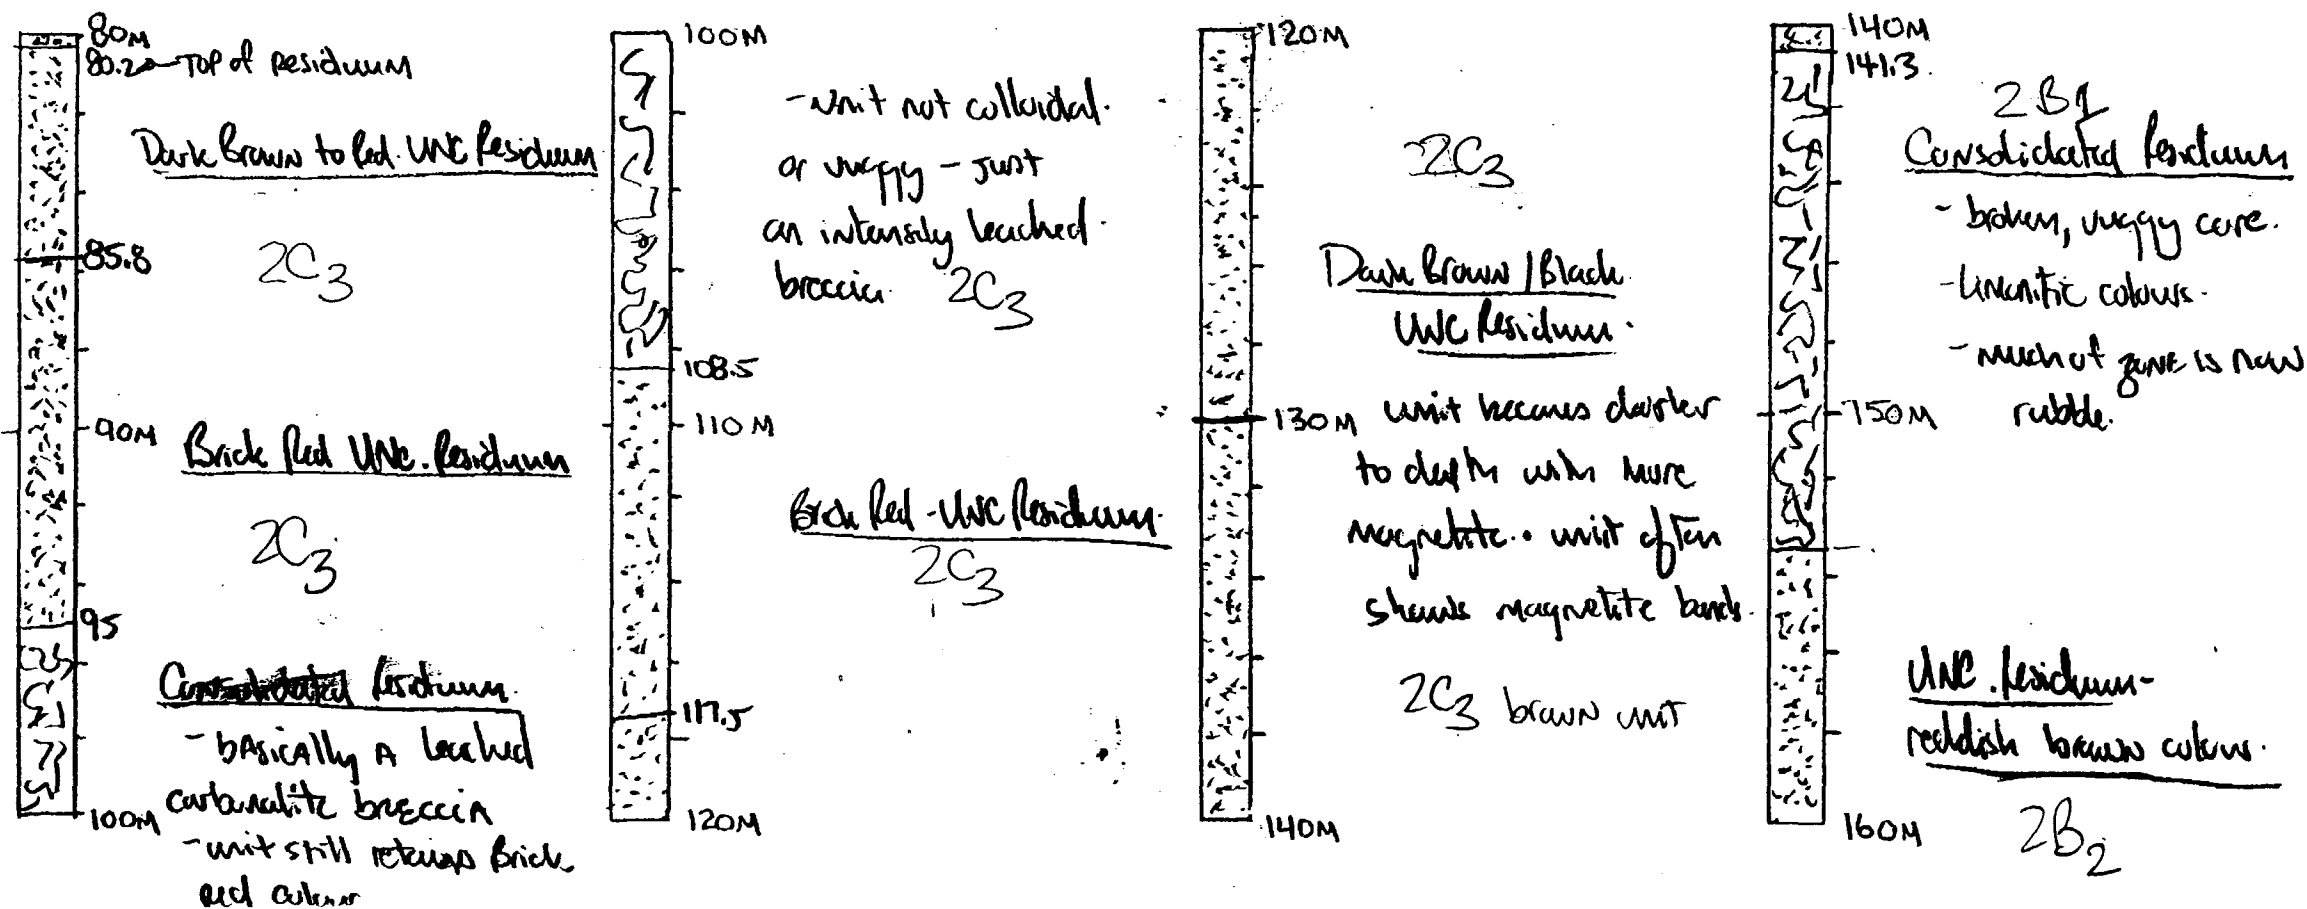 80M
80.2 - TOP of Residuum
Dark Brown to Red UNC Residuum
85.8
2C3
90M
Brick Red UNC. Residuum
2C3
95
Consolidated Residuum
- bAsically A leached
carbonatite breccia
100M
- unit still retains Brick
red colour
100M
- unit not colloidal
or vuggy - just
an intensely leached
breccia 2C3
108.5
110M
Brick Red - UNC Residuum
2C3
117.5
120M
120M
2C3
Dark Brown / Black
UNC Residuum
130M
unit becomes darker
to depth with more
magnetite. unit often
shows magnetite bands
2C3 brown unit
140M
140M
141.3
2B1
Consolidated Residuum
- broken, vuggy core.
- limonitic colours.
- much of zone is now
rubble.
150M
UNC. Residuum -
reddish brown colour.
160M
2B2